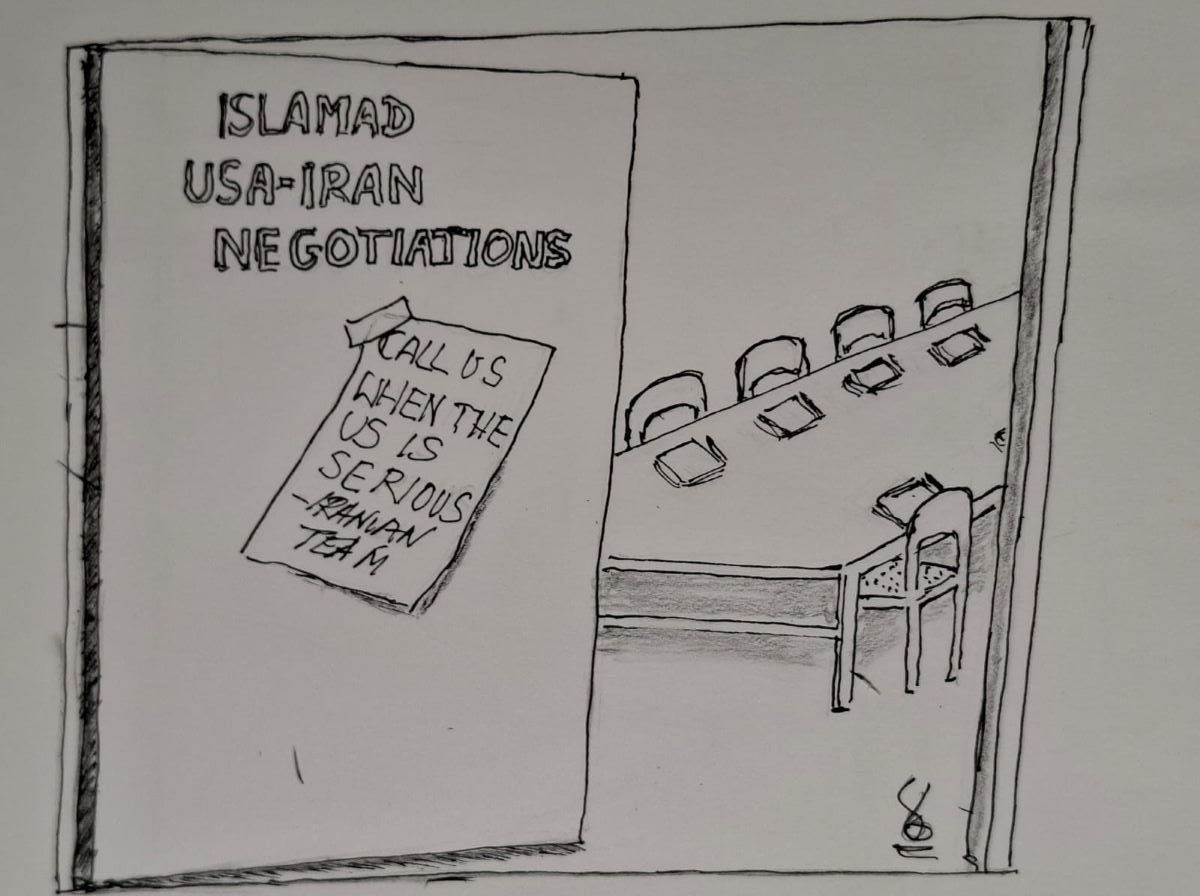 ISLAMAD
USA-IRAN
NEGOTIATIONS
CALL US
WHEN THE
US IS
SERIOUS
-IRANIAN
TEAM